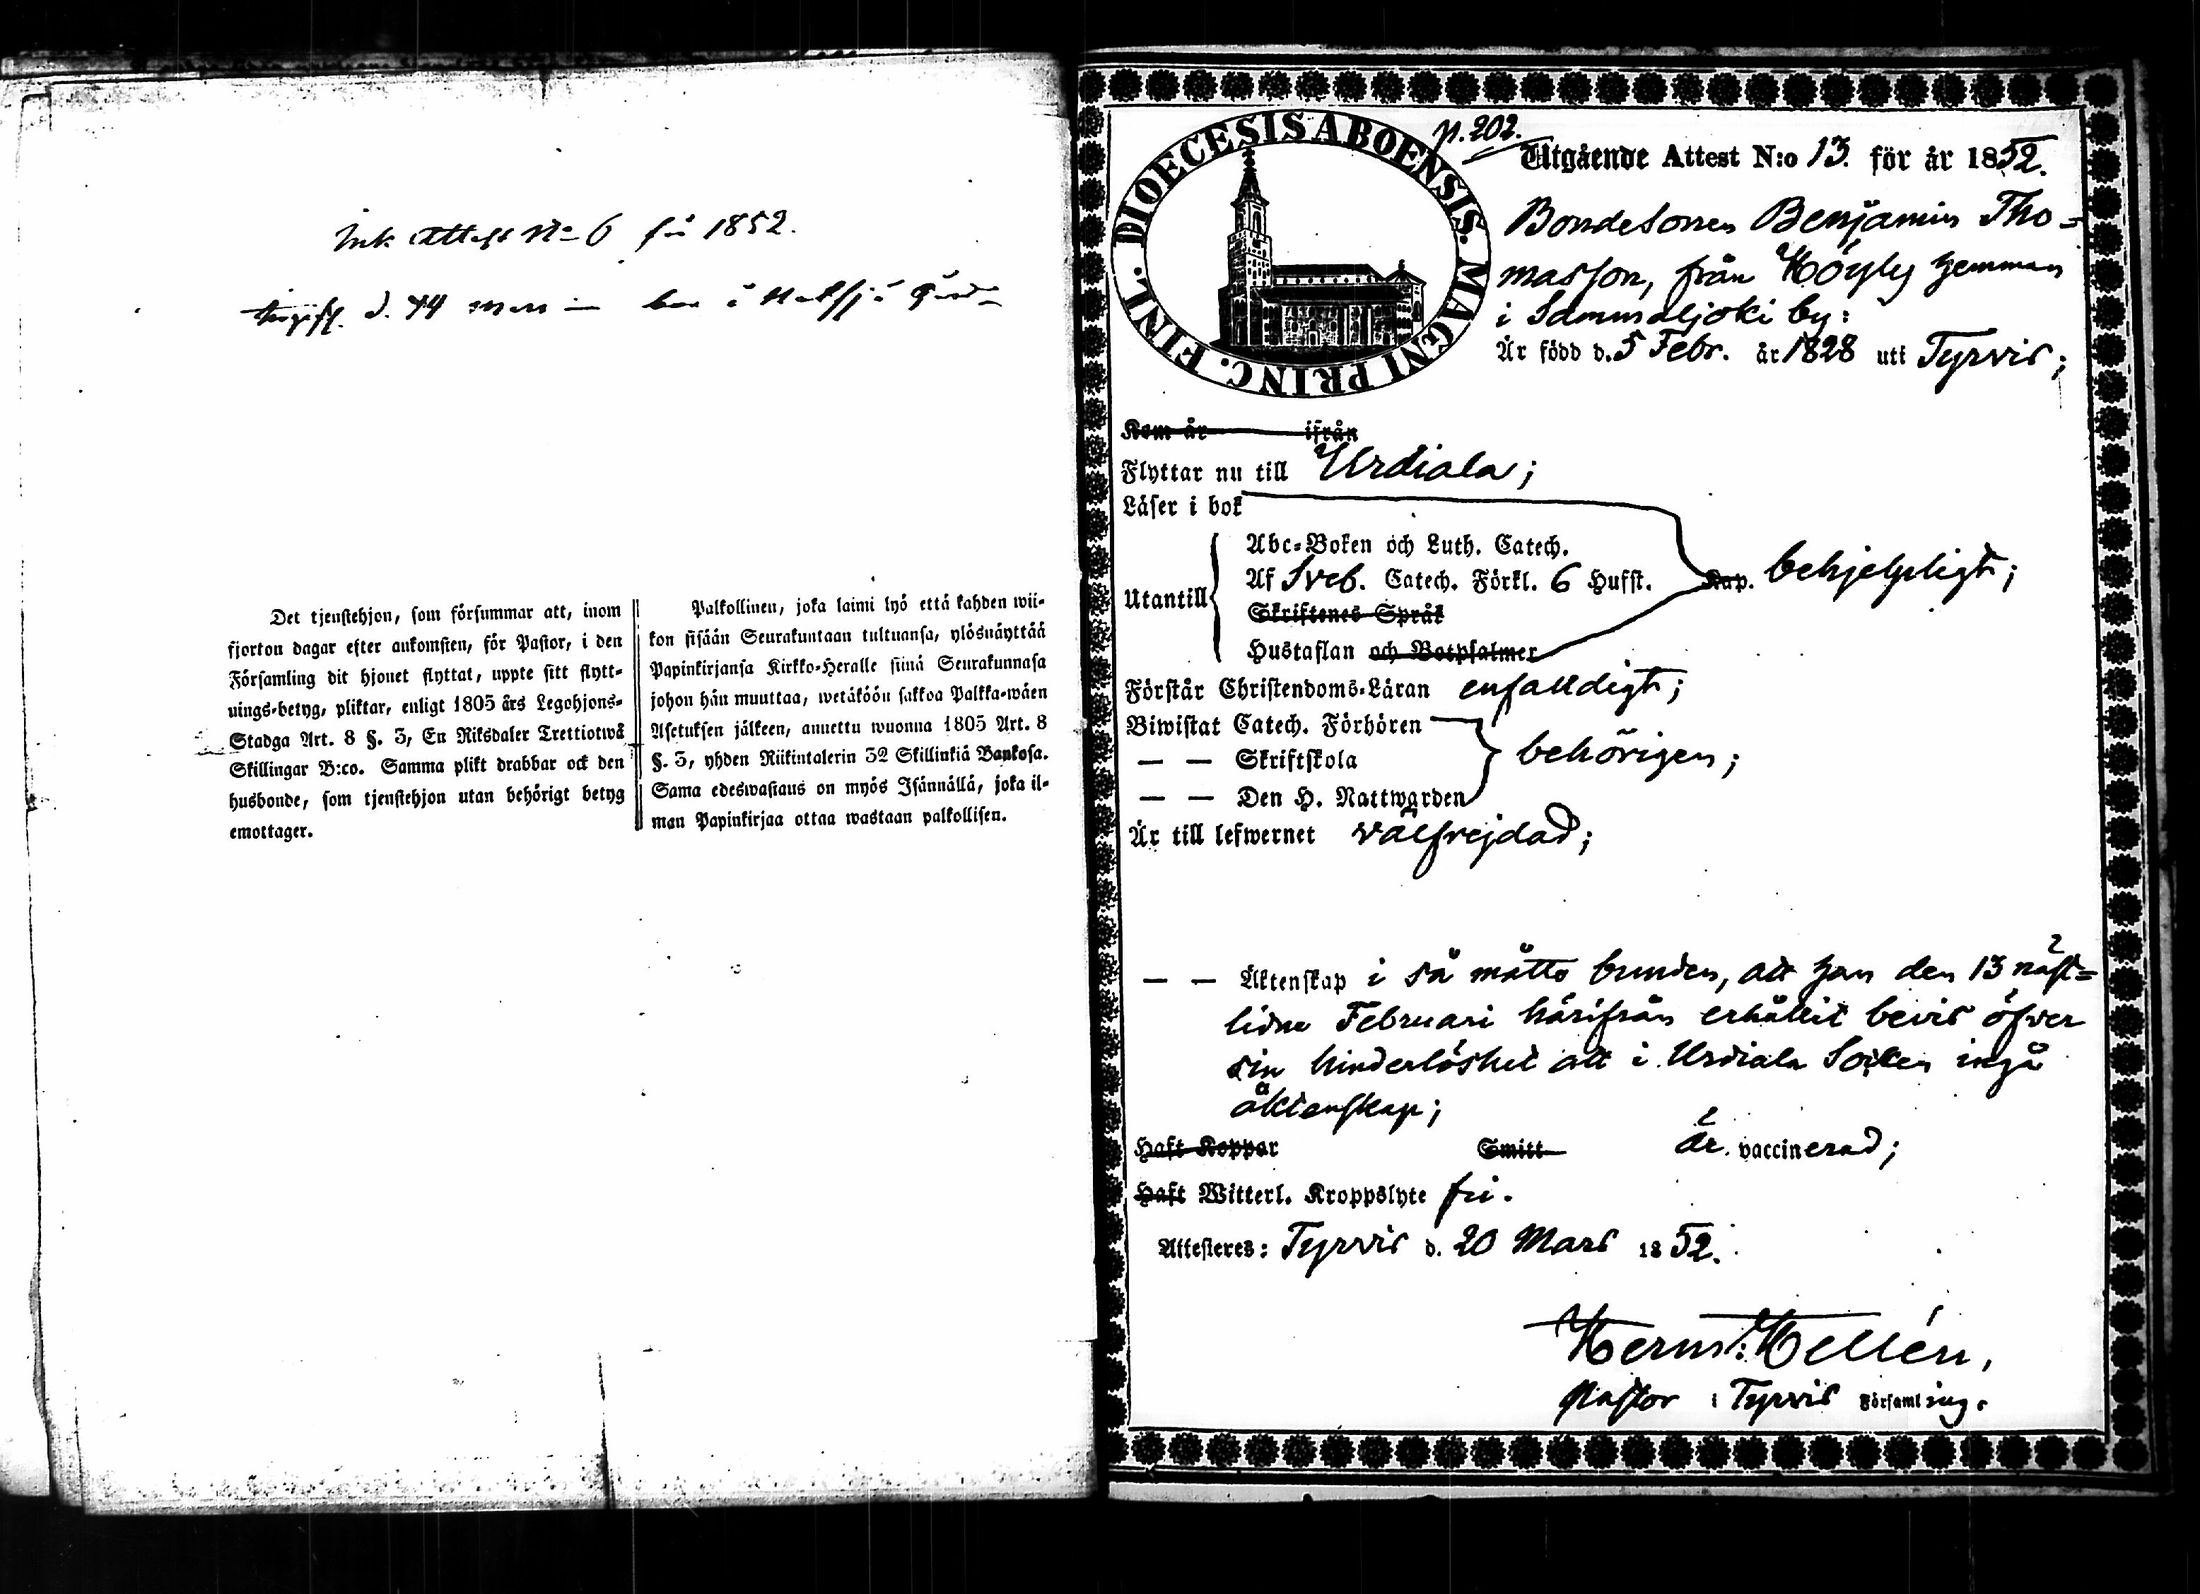 Ink Attest No 6 för 1852.
Det tjenstehjon, som försummar att, inom
fjorton dagar efter ankomsten, för Pastor, i den
Församling dit hjonet flyttat, uppte sitt flytt-
nings-betyg, pliktar, enligt 1805 års Legohjons-
Stadga Art. 8 §. 3, En Riksdaler Trettiotwå
Skillingar B:co. Samma plikt drabbar ock den
husbonde, som tjenstehjon utan behörigt betyg
emottager.
Palkollinen, joka laimi lyö että kahden wii-
kon sisään Seurakuntaan tultuansa, ylösnäyttää
Papinkirjansa Kirkko-Heralle siinä Seurakunnasa
johon hän muuttaa, wetäköön sakkoa Palkka-wäen
Asetuksen jälkeen, annettu wuonna 1805 Art. 8
§. 3, yhden Riikintalerin 32 Skillinkiä Bankosa.
Sama edeswastaus on myös Isännällä, joka il-
man Papinkirjaa ottaa wastaan palkollisen.
DIOECESIS ABOENSIS. MAGNI PRINC. FINL.
p. 202.
Utgående Attest N:o 13. för år 1852.
Bondesonen Benjamin Tho-
masson, från Höyly hemman
i Sammaljoki by:
Är född d. 5 Febr. år 1828 uti Tyrvis;
Kom år ifrån
Flyttar nu till Urdiala;
Läser i bok
Utantill
Abc-Boken och Luth. Catech.
Af Sveb. Catech. Förkl. 6 Hufst. Kap. behjelpligt;
Skriftenes Språk
Hustaflan och Botpsalmer
Förstår Christendoms-Läran enfalldigt;
Biwistat Catech. Förhören
— — Skriftskola behörigen;
— — Den H. Nattwarden
Är till lefwernet välfrejdad;
— — Äktenskap i så måtto bunden, att han den 13 näst-
lidne Februari härifrån erhållit bevis öfver
sin hinderlöshet att i Urdiala Socken ingå
äktenskap;
Haft Koppor Smitt är vaccinerad;
Haft Witterl. Kroppslyte fri.
Attesteres: Tyrvis d. 20 Mars 1852.
Herm: Hellén,
Pastor i Tyrvis Församling.